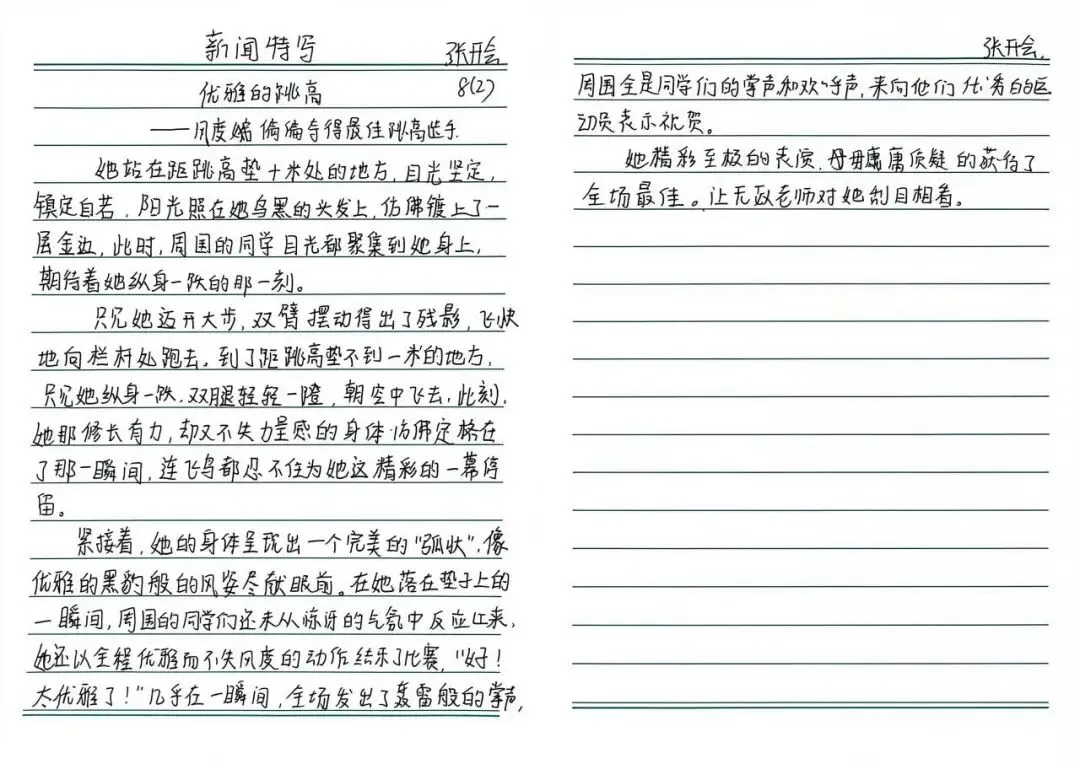 新闻特写 张开会
优雅的跳高 8(2)
——风度媥偏偏夺得最佳跳高选手.
她站在距跳高垫十米处的地方,目光坚定,
镇定自若,阳光照在她乌黑的头发上,仿佛镀上了一
层金边,此时,周围的同学目光都聚集到她身上,
期待着她纵身一跃的那一刻。
只见她迈开大步,双臂摆动得出了残影,飞快
地向栏杆处跑去。到了距跳高垫不到一米的地方,
只见她纵身一跃.双腿轻轻一蹬,朝空中飞去.此刻,
她那修长有力,却又不失力量感的身体仿佛定格在
了那一瞬间,连飞鸟都忍不住为她这精彩的一幕停
留。
紧接着,她的身体呈现出一个完美的"弧状".像
优雅的黑豹般的风姿尽献眼前。在她落在垫子上的
一瞬间,周围的同学们还未从惊讶的气氛中反应过来,
她还以全程优雅而不失风度的动作结束了比赛,"好!
太优雅了!"几乎在一瞬间,全场发出了轰雷般的掌声,
张开会.
周围全是同学们的掌声和欢呼声,来向他们优秀的运
动员表示祝贺。
她精彩至极的表演.毋毋庸庸质疑的获得了
全场最佳。让无数老师对她刮目相看。